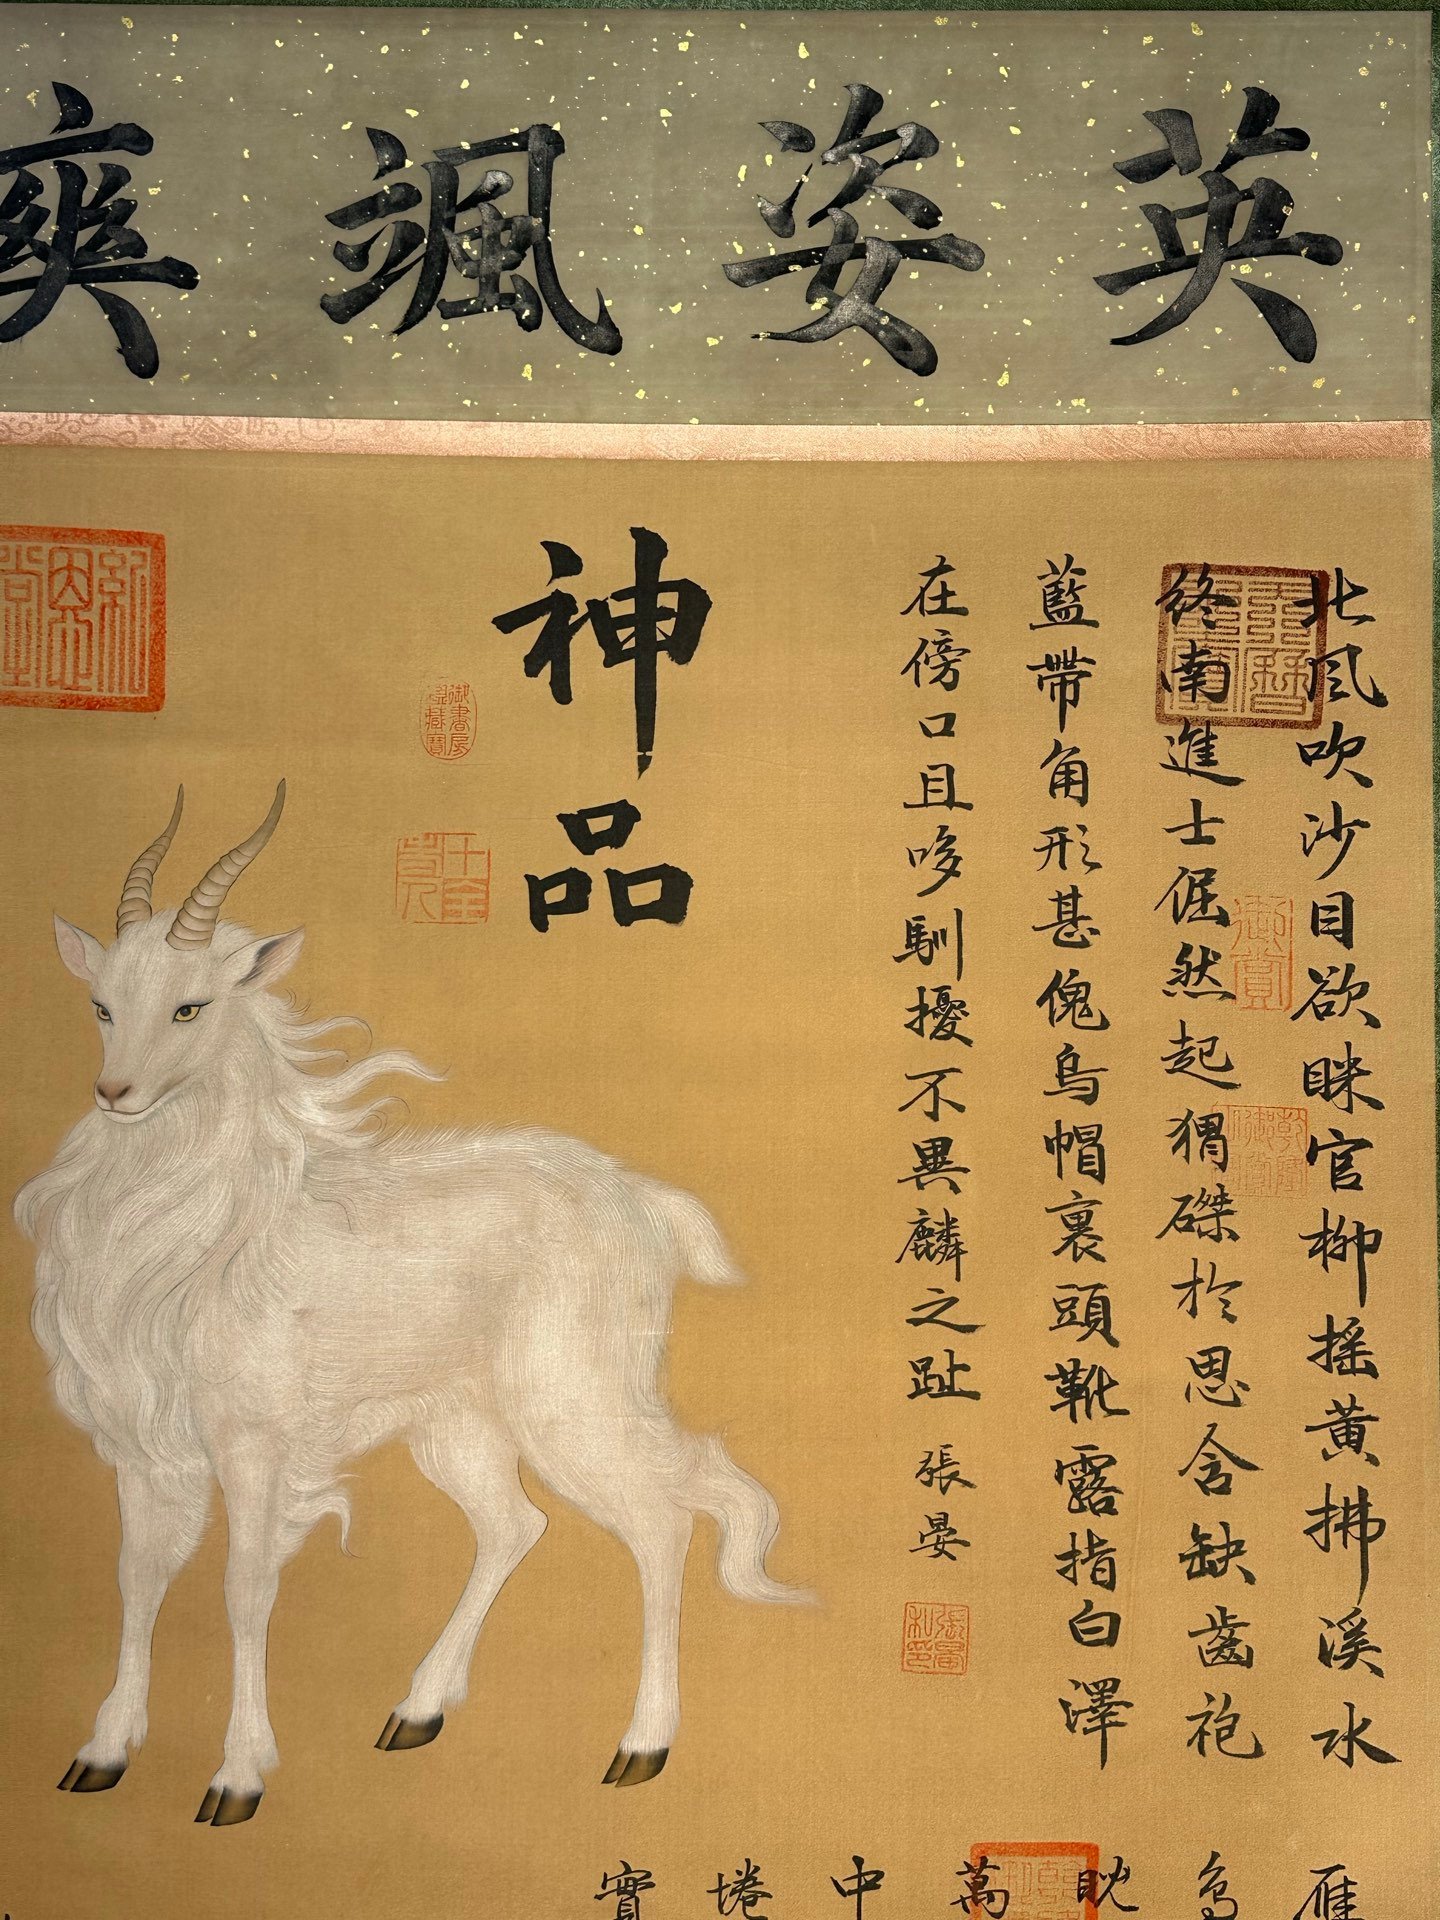 英姿颯爽
北風吹沙目欲眯官柳摇黄拂溪水
終南進士倔然起猬磔於思含缺齒袍
藍帶角形甚傀烏帽裹頭靴露指白澤
在傍口且哆馴擾不異麟之趾 張晏
神品
御書房鑑藏寶
御賞
雁
鳥
眈
萬
中
惓
實